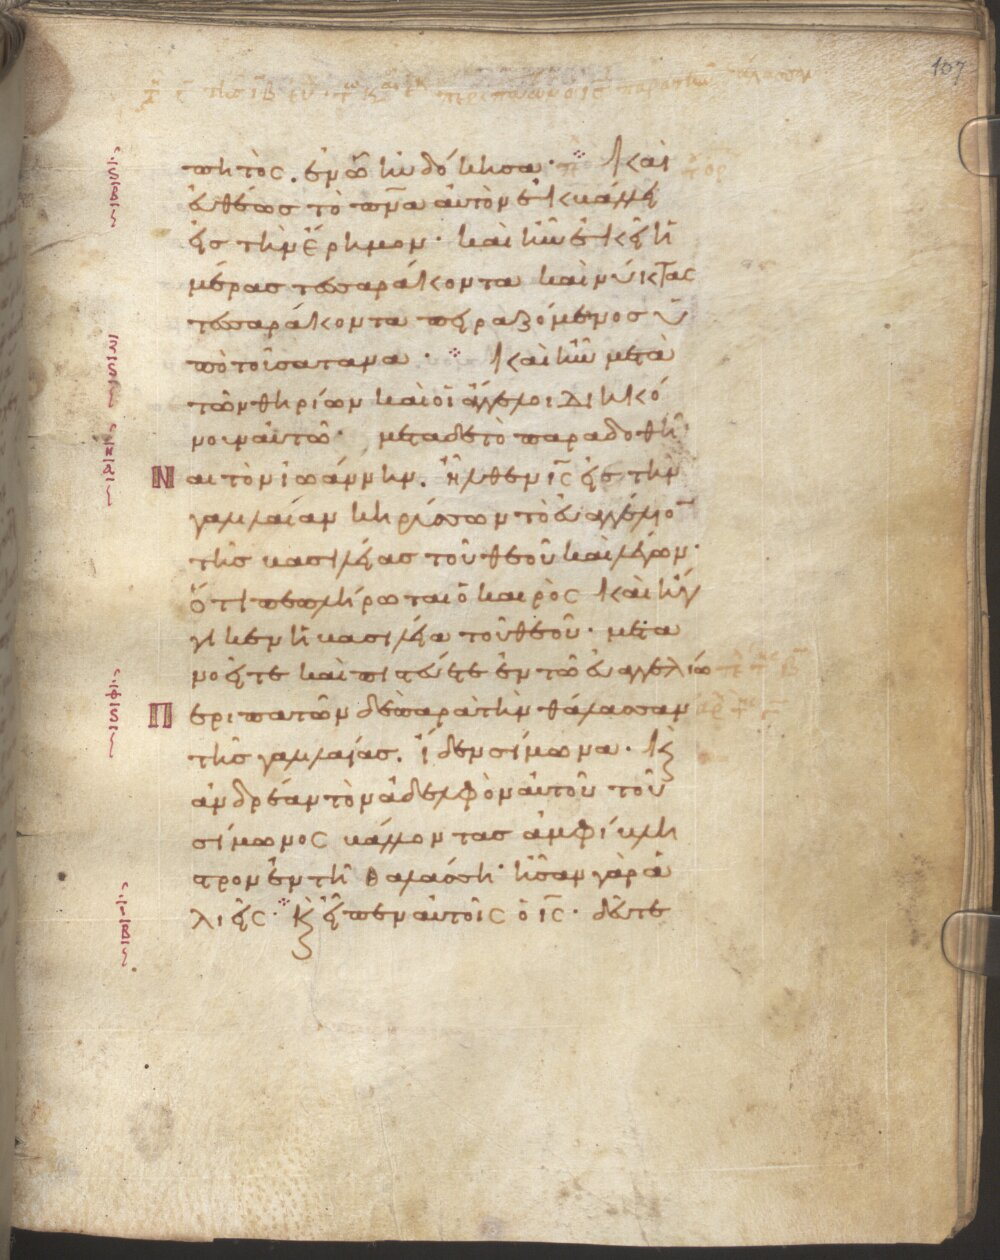 107
πητὸς. ἐν ὧ ηὐδόκησα· Καὶ
ἐυθέως τὸ πνα ἀυτὸν ἐκβάλλει
εἰς τὴν ἔρημον· καὶ ἦν ἐκεῖ ἡ
μέρας τεσσαράκοντα καὶ νύκτας
τεσσαράκοντα πειραζόμενος ὑ
πὸ τοῦ σατανα· Καὶ ἦν μετὰ
τῶν θηρίων καὶ οἱ ἄγγελοι διηκό
νουν αὐτῶ· μετα δε τὸ παραδοθῆ
Ναι τὸν ἰωάννην. ἦλθεν ις εἰς τὴν
γαλιλαίαν κηρύσσων τὸ ἐυαγγέλιον
τῆς βασιλείας τοῦ θεοῦ καὶ λέγων·
ὅτι πεπλήρωται ὁ καιρὸς καὶ ἤγ
γικεν ἡ βασιλεία τοῦ θεοῦ· μετα
νοεῖτε καὶ πιστεύετε ἐν τῶ ἐυαγγελίω
Περιπατῶν δὲ παρὰ τὴν θάλασσαν
τῆς γαλιλαίας. ἴδεν σίμωνα· Κς
ἀνδρέαν τὸν ἀδελφὸν ἀυτοῦ τοῦ
σίμωνος βάλλοντας ἀμφίβλη
στρον ἐν τῆ θαλάσση· ἦσαν γὰρ ἁ
λιεῖς· Κς εἶπεν αυτοῖς ὁ ις· δεῦτε